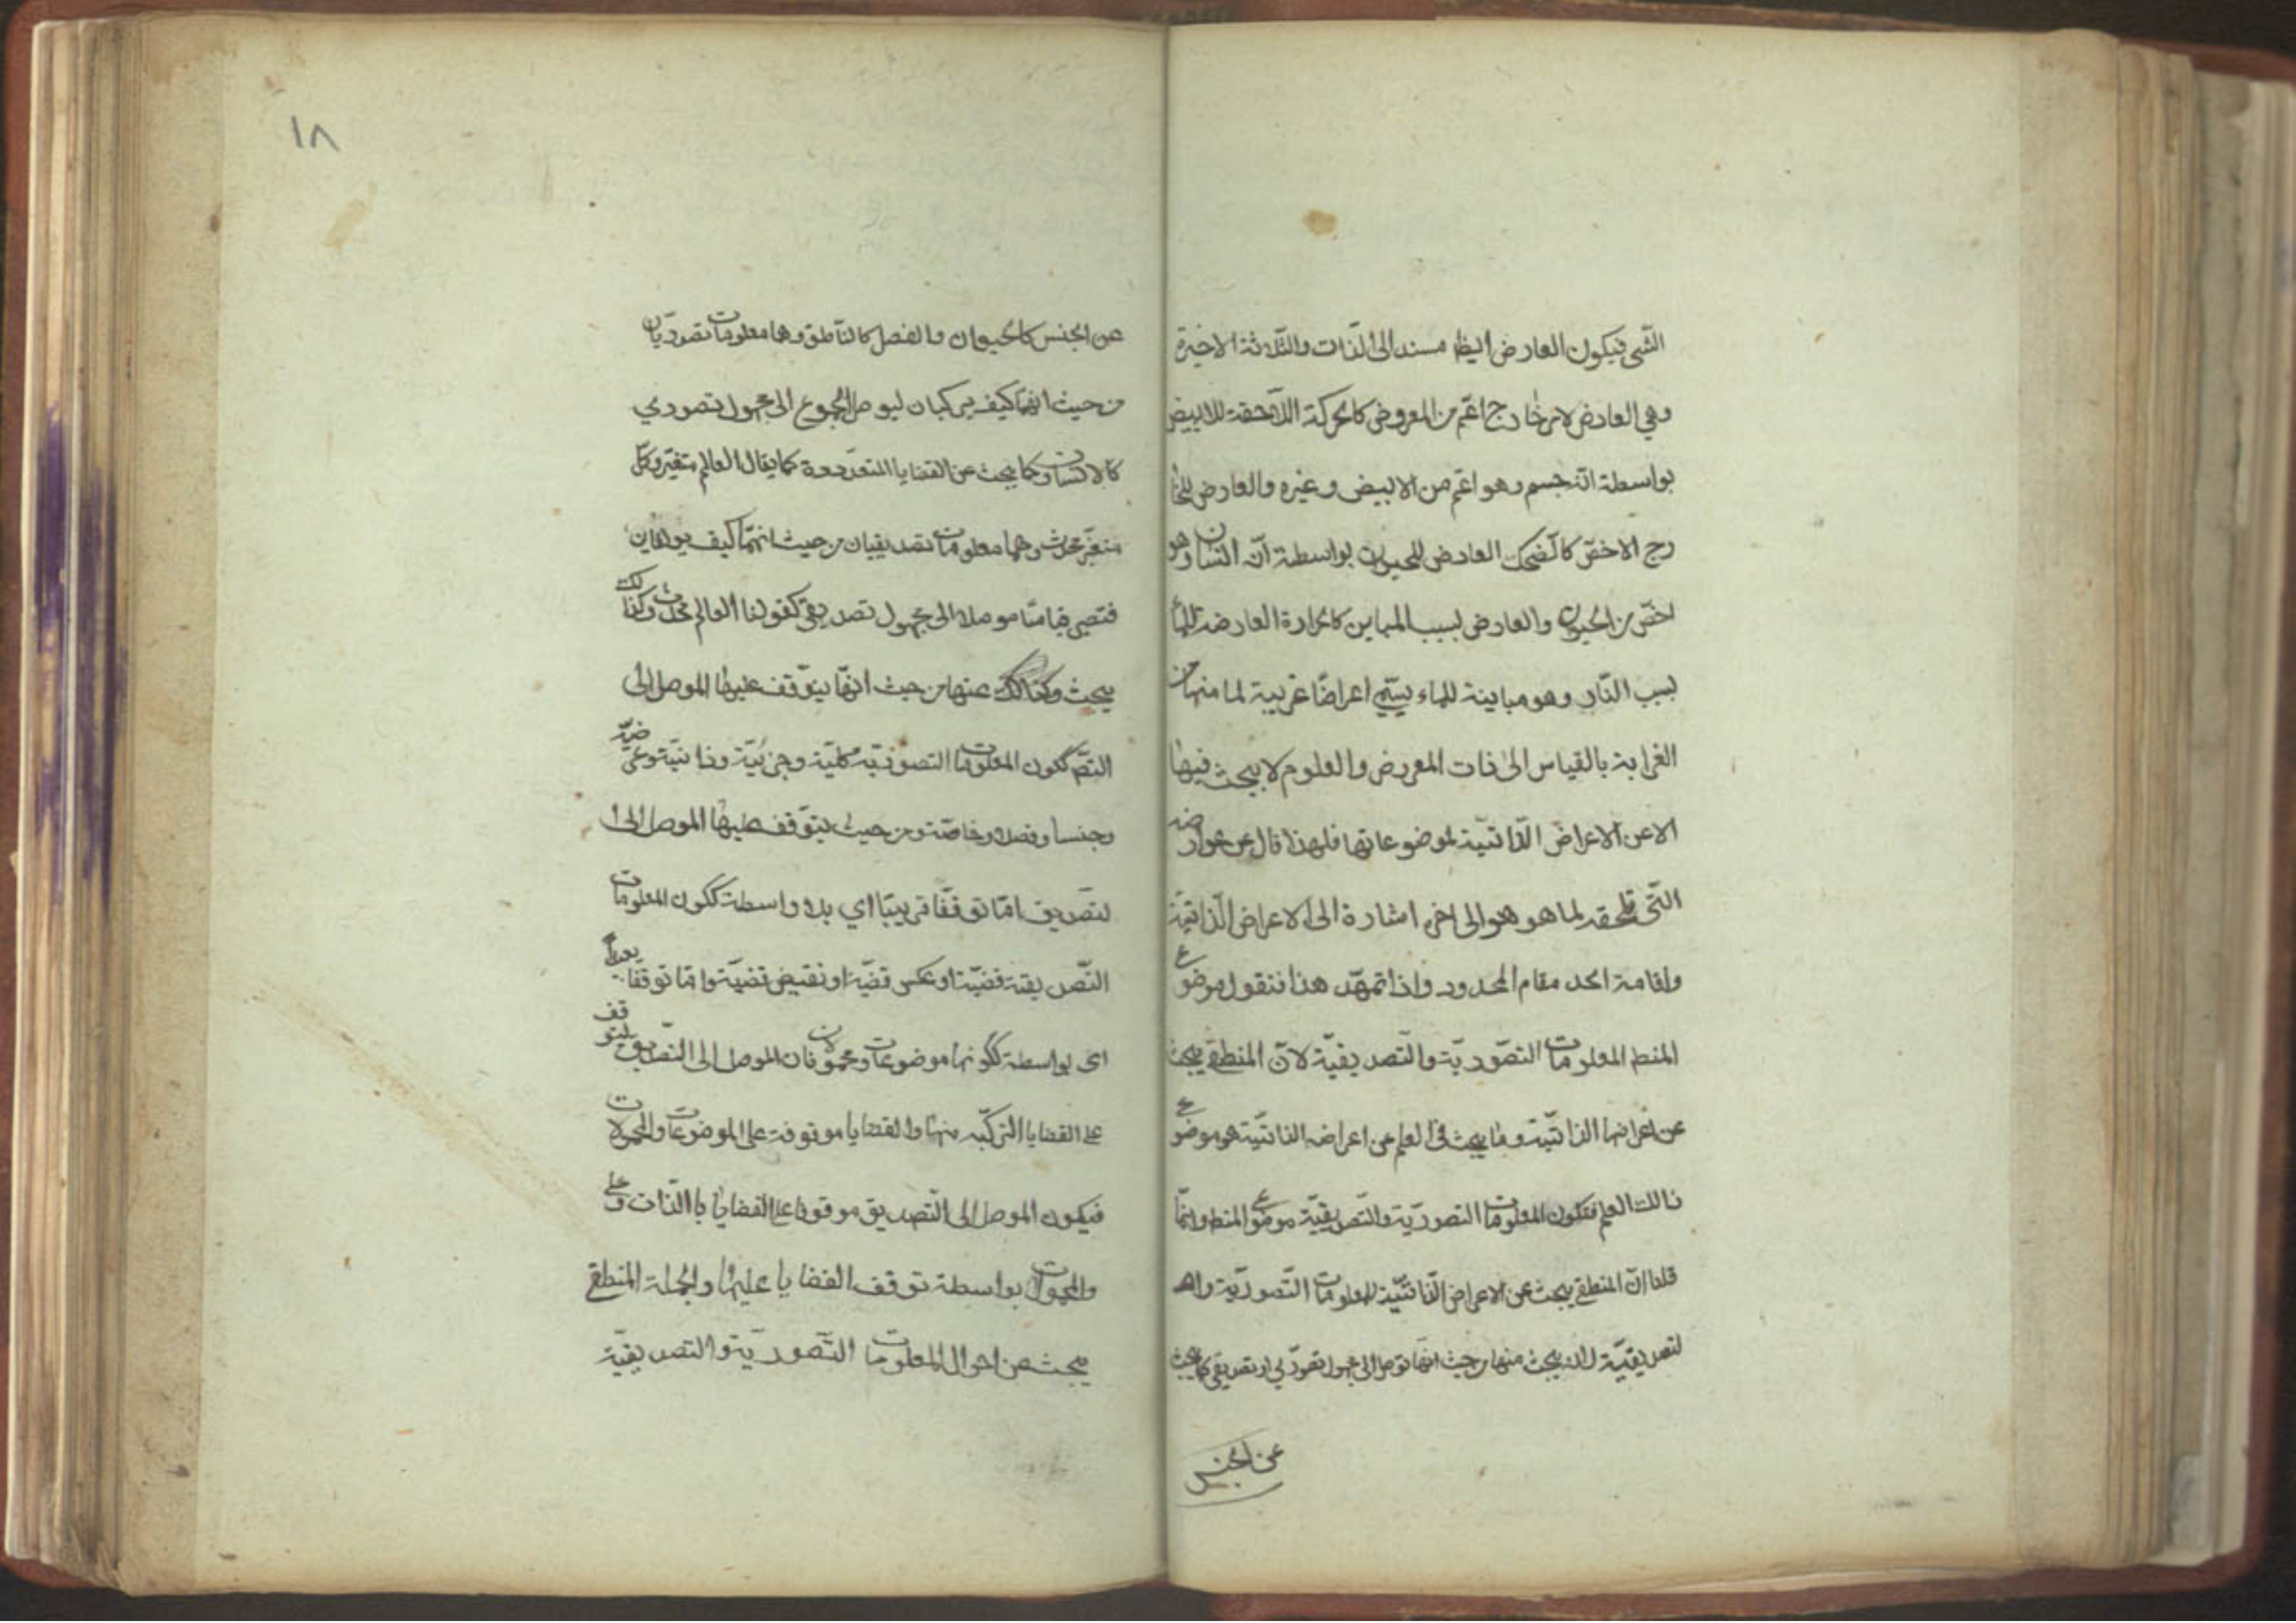 الشئ فيكون العارض ايضا مسندا الى الذات والثلاثة الاخيرة
وهي العارض لامر خارج اعم من المعروض كالحركة اللاحقة للابيض
بواسطة انه جسم وهو اعم من الابيض وغيره والعارض للخا
رج الاخص كالضحك العارض للحيوان بواسطة انه انسان وهو
اخص من الحيوان والعارض بسبب المباين كالحرارة العارضة للماء
بسبب النار وهو مباينة للماء يسمى اعراضا غريبة لما منها من
الغرابة بالقياس الى ذات المعروض والعلوم لا يبحث فيها
الا عن الاعراض الذاتية لموضوعاتها فلهذا قال عن عوارضه
التي تلحقه لما هو هو الى اخره اشارة الى الاعراض الذاتية
واقامة الحد مقام المحدود واذا تمهد هذا فنقول موضوع
المنط المعلومات التصورية والتصديقية لان المنطقي يبحث
عن اعراضها الذاتية وما يبحث في العلم عن اعراضه الذاتية هو موضوع
ذالك العلم فتكون المعلومات التصورية والتصديقية موضوع المنط وانما
قلنا ان المنطقي يبحث عن الاعراض الذاتية للمعلومات التصورية وا
لتصديقية لانه يبحث منها من حيث انها توصل الى مجهول تصوري او تصديقي كما يبحث
عن الجنس
١٨
عن الجنس كالحيوان والفصل كالناطق وهما معلومات تصوريان
من حيث انهما كيف يركبان ليوصل المجموع الى مجهول تصوري
كالانسان وكما يبحث عن القضايا المتعددة كما يقال العالم متغير وكل
متغير محدث وهما معلومات تصديقيان من حيث انهما كيف يولفان
فتصير قياسا موصلا الى مجهول تصديقي كقولنا العالم محدث وكذالك
يبحث عنها من حيث انها يتوقف عليها الموصل الى
التصو ككون المعلومات التصورية كلية وجزئية وذاتية وعرضية
وجنسا وفصلا وخاصة ومن حيث يتوقف عليها الموصل الى ا
لتصديق اما توقفا قريبا اي بلا واسطة ككون المعلومات
التصديقية قضية او عكس قضية او نقيض قضية واما توقفا بعيدا
اى بواسطة ككونها موضوعات ومحمولات فان الموصل الى التصديق يتوقف
على القضايا التركبه منها والقضايا موقوفة على الموضوعات والمحمولات
فيكون الموصل الى التصديق موقوفا على القضايا بالذات وعلى
والمحمولات بواسطة توقف القضايا عليها والجملة المنطقي
يبحث عن احوال المعلومات التصورية والتصديقية